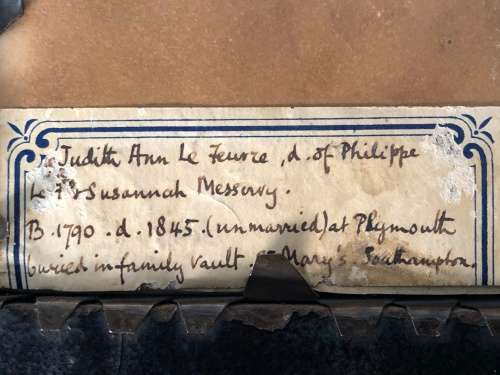 Judith Ann Le Feuvre, d. of Philippe
Le F & Susannah Messervy.
B. 1790. d. 1845. (unmarried) at Plymouth
buried in family vault. St Mary's Southampton.